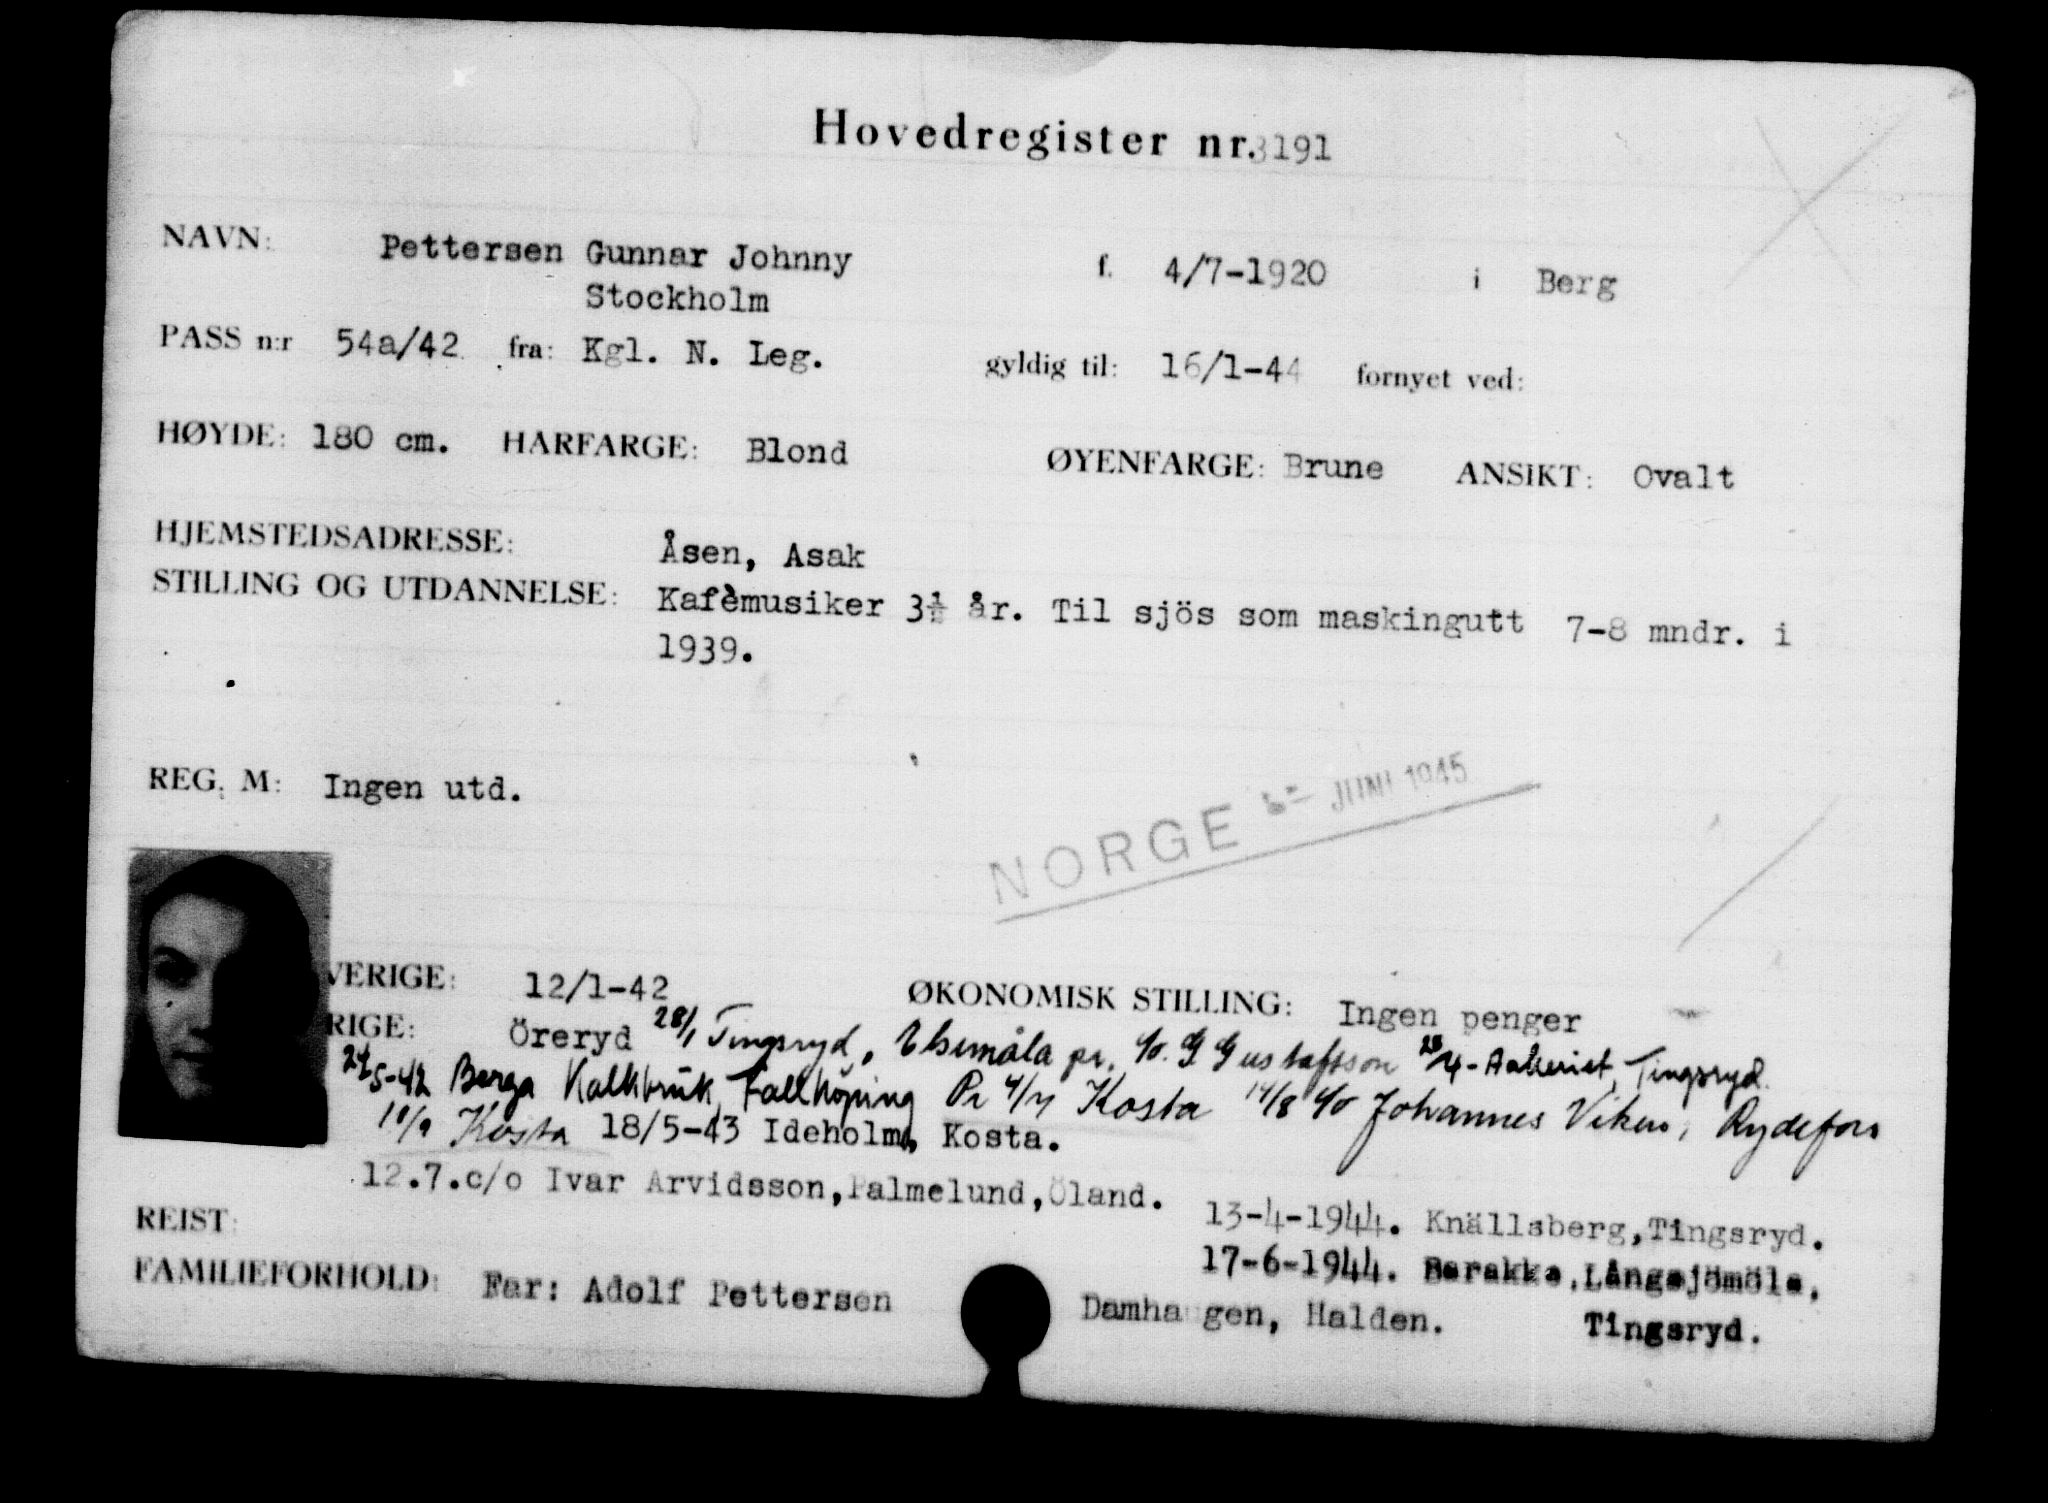 Hovedregister nr. 3191
NAVN: Pettersen Gunnar Johnny f. 4/7-1920 i Berg
Stockholm
PASS n:r 54a/42 fra: Kgl. N. Leg. gyldig til: 16/1-44 fornyet ved:
HØYDE: 180 cm. HARFARGE: Blond ØYENFARGE: Brune ANSIKT: Ovalt
HJEMSTEDSADRESSE: Åsen, Asak
STILLING OG UTDANNELSE: Kafèmusiker 3½ år. Til sjös som maskingutt 7-8 mndr. i
1939.
REG. M: Ingen utd.
NORGE JUNI 1945
VERIGE: 12/1-42 ØKONOMISK STILLING: Ingen penger
RIGE: Öreryd 28/1 Tingsryd, Elsemåla pr. c/o. G Gustafsson Tingsryd.
5-42 Berga Kalkbruk, Falköping Pr 4/7 Kosta 14/8 c/o Johannes Viken, Rydefors
10/9 Kosta 18/5-43 Ideholm, Kosta.
12.7.c/o Ivar Arvidsson, Palmelund, Öland.
13-4-1944. Knällsberg, Tingsryd.
REIST:
17-6-1944. Barakke, Långsjömåla,
FAMILIEFORHOLD: Far: Adolf Pettersen Damhaugen, Halden. Tingsryd.